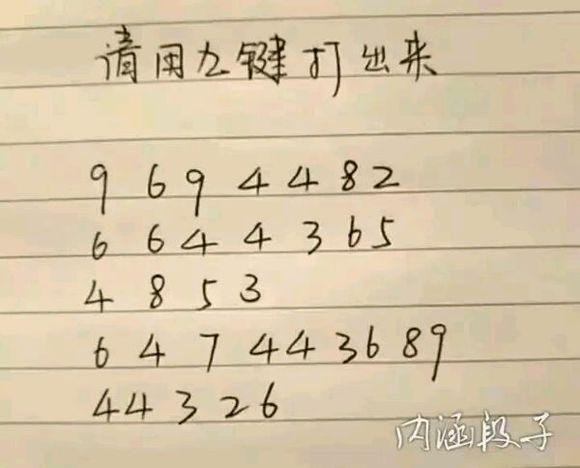 请用九键打出来
9 6 9 4 4 8 2
6 6 4 4 3 6 5
4 8 5 3
6 4 7 4 4 3 6 8 9
4 4 3 2 6
内涵段子